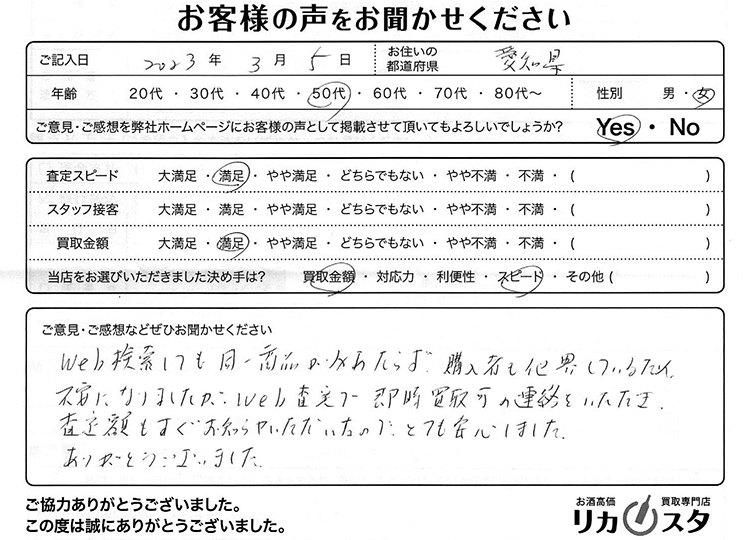 お客様の声をお聞かせください
ご記入日 2023 年 3 月 5 日 お住いの都道府県 愛知県
年齢 20代 ・ 30代 ・ 40代 ・ 50代 ・ 60代 ・ 70代 ・ 80代〜 性別 男 ・ 女
ご意見・ご感想を弊社ホームページにお客様の声として掲載させて頂いてもよろしいでしょうか? Yes ・ No
査定スピード 大満足 ・ 満足 ・ やや満足 ・ どちらでもない ・ やや不満 ・ 不満 ・ ( )
スタッフ接客 大満足 ・ 満足 ・ やや満足 ・ どちらでもない ・ やや不満 ・ 不満 ・ ( )
買取金額 大満足 ・ 満足 ・ やや満足 ・ どちらでもない ・ やや不満 ・ 不満 ・ ( )
当店をお選びいただきました決め手は? 買取金額 ・ 対応力 ・ 利便性 ・ スピード ・ その他 ( )
ご意見・ご感想などぜひお聞かせください
Web検索しても同一商品がみあたらず、購入者も他界しているため
不安になりましたが、Web査定で即時買取可の連絡をいただき、
査定額もすぐお知らせいただいたので、とても安心しました。
ありがとうございました。
ご協力ありがとうございました。
この度は誠にありがとうございました。
お酒高価 買取専門店
リカスタ